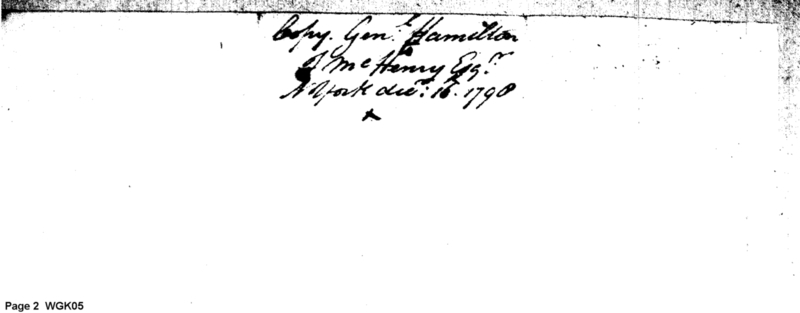 Copy. Genl. Hamilton
J McHenry Esqr.
N York decr. 16. 1798
x
Page 2 WGK05